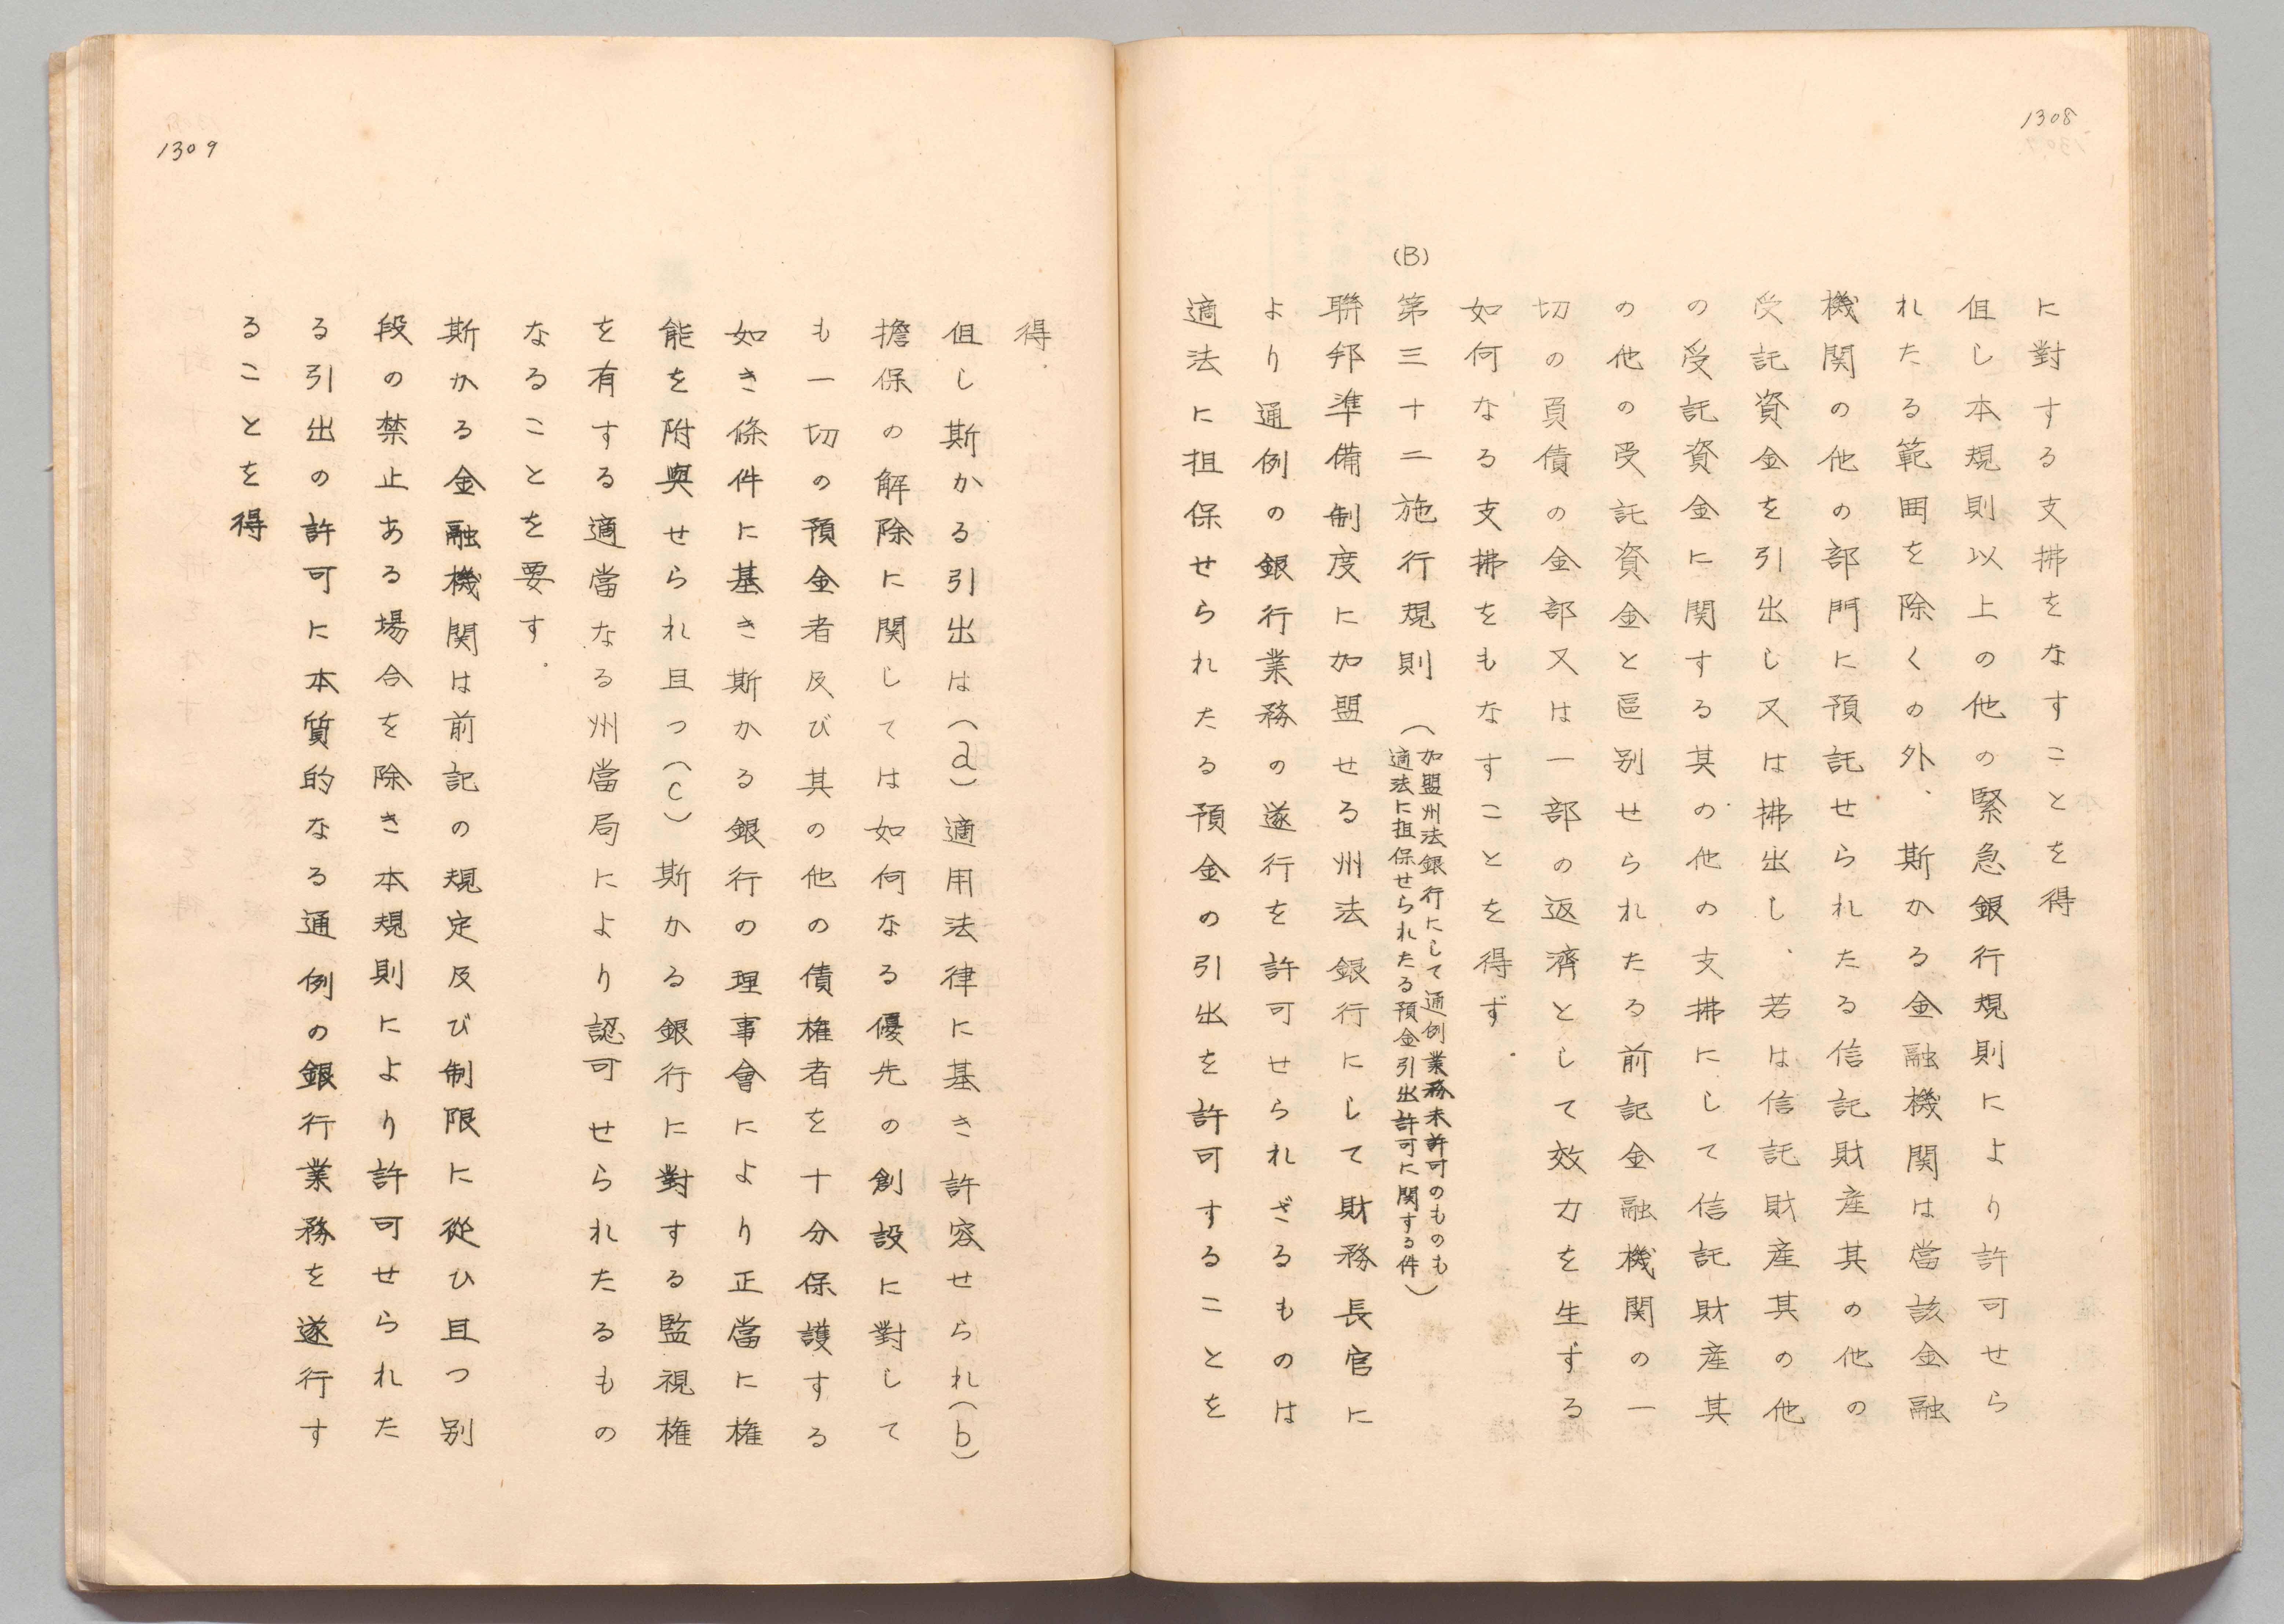 1308
に對する支拂をなすことを得
伹し本規則以上の他の緊急銀行規則により許可せら
れたる範囲を除くの外、斯かる金融機関は當該金融
機関の他の部門に預託せられたる信託財産其の他の
受託資金を引出し又は拂出し、若は信託財産其の他
の受託資金に関する其の他の支拂にして信託財産其
の他の受託資金と區別せられたる前記金融機関の一
切の負債の全部又は一部の返濟として效力を生ずる
如何なる支拂をもなすことを得ず．
(B)
第三十二施行規則（加盟州法銀行にして通例業務未許可のものも
適法に担保せられたる預金引出許可に関する件）
聯邦準備制度に加盟せる州法銀行にして財務長官に
より通例の銀行業務の遂行を許可せられざるものは
適法に担保せられたる預金の引出を許可することを
1309
得．
伹し斯かる引出は（a）適用法律に基き許容せられ（b）
擔保の解除に関しては如何なる優先の創設に對して
も一切の預金者及び其の他の債権者を十分保護する
如き條件に基き斯かる銀行の理事會により正當に権
能を附與せられ且つ（c）斯かる銀行に對する監視権
を有する適當なる州當局により認可せられたるもの
なることを要す．
斯かる金融機関は前記の規定及び制限に從ひ且つ別
段の禁止ある場合を除き本規則により許可せられた
る引出の許可に本質的なる通例の銀行業務を遂行す
ることを得